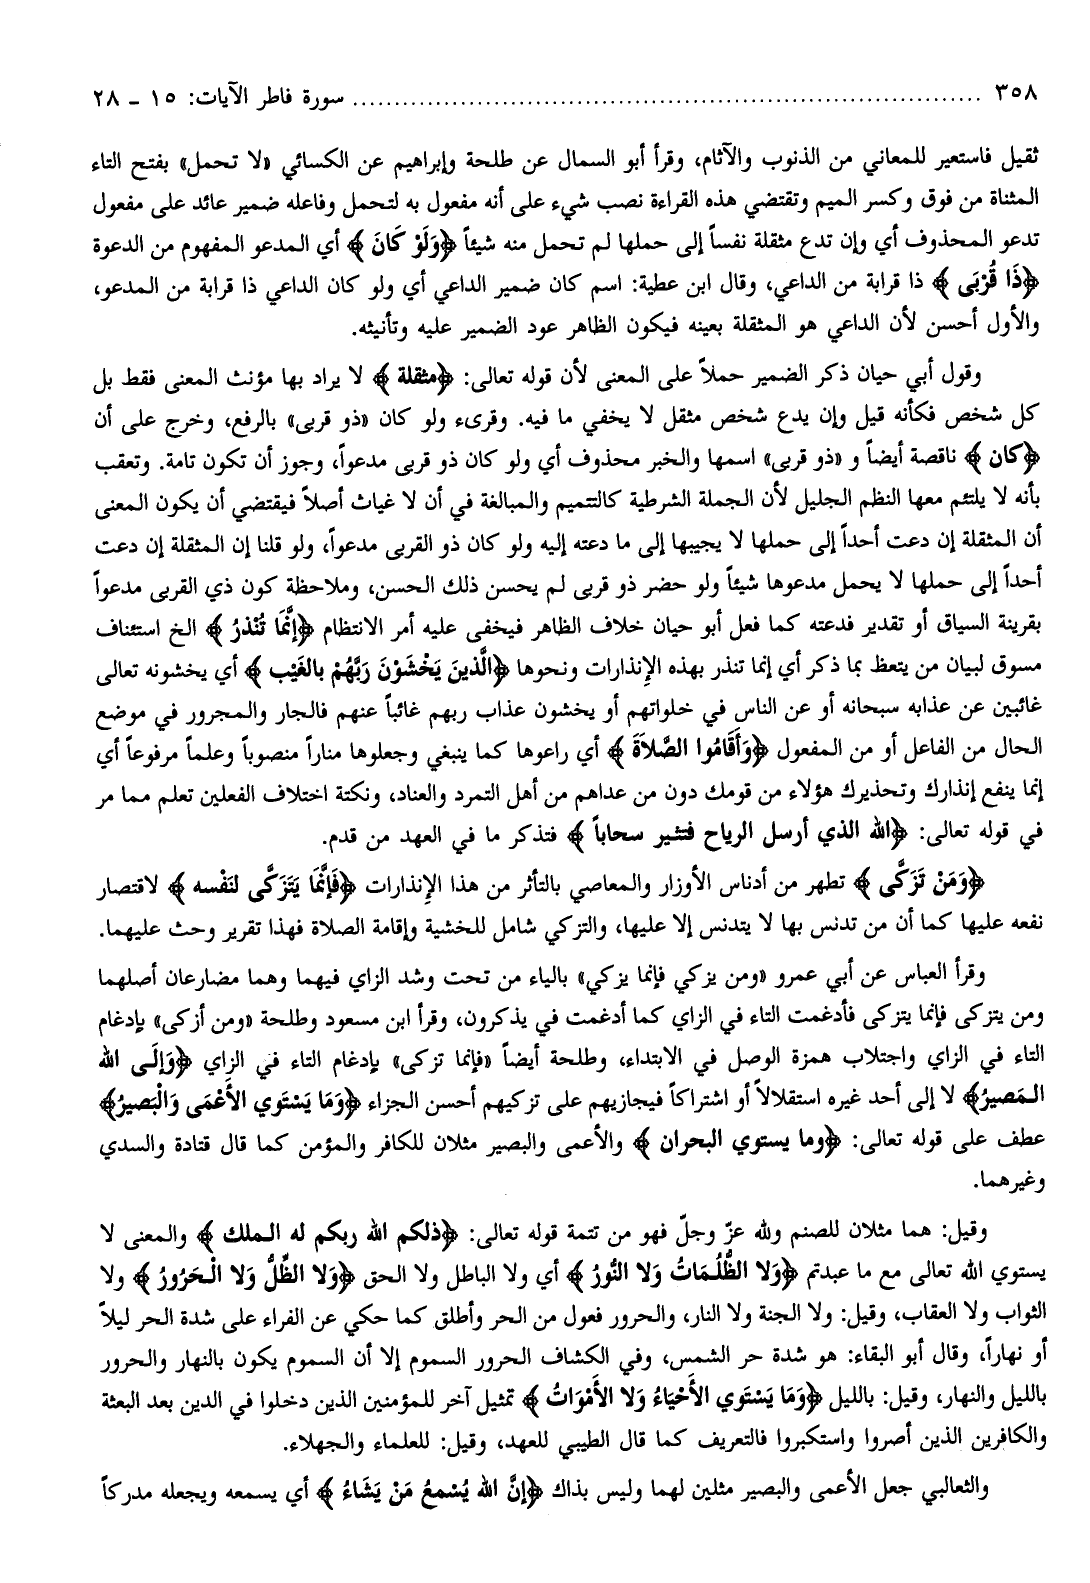 ٣٥٨ ........................................ سورة فاطر الآيات: ١٥ - ٢٨
ثقيل فاستعير للمعاني من الذنوب والآثام، وقرأ أبو السمال عن طلحة وإبراهيم عن الكسائي «لا تحمل» بفتح التاء
المثناة من فوق وكسر الميم وتقتضي هذه القراءة نصب شيء على أنه مفعول به لتحمل وفاعله ضمير عائد على مفعول
تدعو المحذوف أي وإن تدع مثقلة نفساً إلى حملها لم تحمل منه شيئاً ﴿وَلَوْ كَانَ﴾ أي المدعو المفهوم من الدعوة
﴿ذَا قُرْبَى﴾ ذا قرابة من الداعي، وقال ابن عطية: اسم كان ضمير الداعي أي ولو كان الداعي ذا قرابة من المدعو،
والأول أحسن لأن الداعي هو المثقلة بعينه فيكون الظاهر عود الضمير عليه وتأنيثه.
وقول أبي حيان ذكر الضمير حملاً على المعنى لأن قوله تعالى: ﴿مثقلة﴾ لا يراد بها مؤنث المعنى فقط بل
كل شخص فكأنه قيل وإن يدع شخص مثقل لا يخفي ما فيه. وقرىء ولو كان «ذو قربى» بالرفع، وخرج على أن
﴿كان﴾ ناقصة أيضاً و «ذو قربى» اسمها والخبر محذوف أي ولو كان ذو قربى مدعواً، وجوز أن تكون تامة. وتعقب
بأنه لا يلتئم معها النظم الجليل لأن الجملة الشرطية كالتتميم والمبالغة في أن لا غياث أصلاً فيقتضي أن يكون المعنى
أن المثقلة إن دعت أحداً إلى حملها لا يجيبها إلى ما دعته إليه ولو كان ذو القربى مدعواً، ولو قلنا إن المثقلة إن دعت
أحداً إلى حملها لا يحمل مدعوها شيئاً ولو حضر ذو قربى لم يحسن ذلك الحسن، وملاحظة كون ذي القربى مدعواً
بقرينة السياق أو تقدير فدعته كما فعل أبو حيان خلاف الظاهر فيخفى عليه أمر الانتظام ﴿إِنَّمَا تُنْذرُ﴾ الخ استئناف
مسوق لبيان من يتعظ بما ذكر أي إنما تنذر بهذه الإنذارات ونحوها ﴿الَّذينَ يَخْشَوْنَ رَبَّهُمْ بالغَيْب﴾ أي يخشونه تعالى
غائبين عن عذابه سبحانه أو عن الناس في خلواتهم أو يخشون عذاب ربهم غائباً عنهم فالجار والمجرور في موضع
الحال من الفاعل أو من المفعول ﴿وَأَقَامُوا الصَّلاَةَ﴾ أي راعوها كما ينبغي وجعلوها مناراً منصوباً وعلماً مرفوعاً أي
إنما ينفع إنذارك وتحذيرك هؤلاء من قومك دون من عداهم من أهل التمرد والعناد، ونكتة اختلاف الفعلين تعلم مما مر
في قوله تعالى: ﴿الله الذي أرسل الرياح فتثير سحاباً﴾ فتذكر ما في العهد من قدم.
﴿وَمَنْ تَزَكَّى﴾ تطهر من أدناس الأوزار والمعاصي بالتأثر من هذا الإنذارات ﴿فَإِنَّمَا يَتَزَكَّى لنَفْسه﴾ لاقتصار
نفعه عليها كما أن من تدنس بها لا يتدنس إلا عليها، والتزكي شامل للخشية وإقامة الصلاة فهذا تقرير وحث عليهما.
وقرأ العباس عن أبي عمرو «ومن يزكي فإنما يزكي» بالياء من تحت وشد الزاي فيهما وهما مضارعان أصلهما
ومن يتزكى فإنما يتزكى فأدغمت التاء في الزاي كما أدغمت في يذكرون، وقرأ ابن مسعود وطلحة «ومن أزكى» بإدغام
التاء في الزاي واجتلاب همزة الوصل في الابتداء، وطلحة أيضاً «فإنما تزكى» بإدغام التاء في الزاي ﴿وَإِلَى الله
المَصيرُ﴾ لا إلى أحد غيره استقلالاً أو اشتراكاً فيجازيهم على تزكيهم أحسن الجزاء ﴿وَمَا يَسْتَوي الأَعْمَى وَالْبَصيرُ﴾
عطف على قوله تعالى: ﴿وما يستوي البحران﴾ والأعمى والبصير مثلان للكافر والمؤمن كما قال قتادة والسدي
وغيرهما.
وقيل: هما مثلان للصنم ولله عزّ وجلّ فهو من تتمة قوله تعالى: ﴿ذلكم الله ربكم له الملك﴾ والمعنى لا
يستوي الله تعالى مع ما عبدتم ﴿وَلا الظُّلُمَاتُ وَلا النُّورُ﴾ أي ولا الباطل ولا الحق ﴿وَلا الظِّلُّ وَلا الْحَرُورُ﴾ ولا
الثواب ولا العقاب، وقيل: ولا الجنة ولا النار، والحرور فعول من الحر وأطلق كما حكي عن الفراء على شدة الحر ليلاً
أو نهاراً، وقال أبو البقاء: هو شدة حر الشمس، وفي الكشاف الحرور السموم إلا أن السموم يكون بالنهار والحرور
بالليل والنهار، وقيل: بالليل ﴿وَمَا يَسْتَوي الأَحْيَاءُ وَلا الأَمْوَاتُ﴾ تمثيل آخر للمؤمنين الذين دخلوا في الدين بعد البعثة
والكافرين الذين أصروا واستكبروا فالتعريف كما قال الطيبي للعهد، وقيل: للعلماء والجهلاء.
والثعالبي جعل الأعمى والبصير مثلين لهما وليس بذاك ﴿إنَّ الله يُسْمعُ مَنْ يَشَاءُ﴾ أي يسمعه ويجعله مدركاً